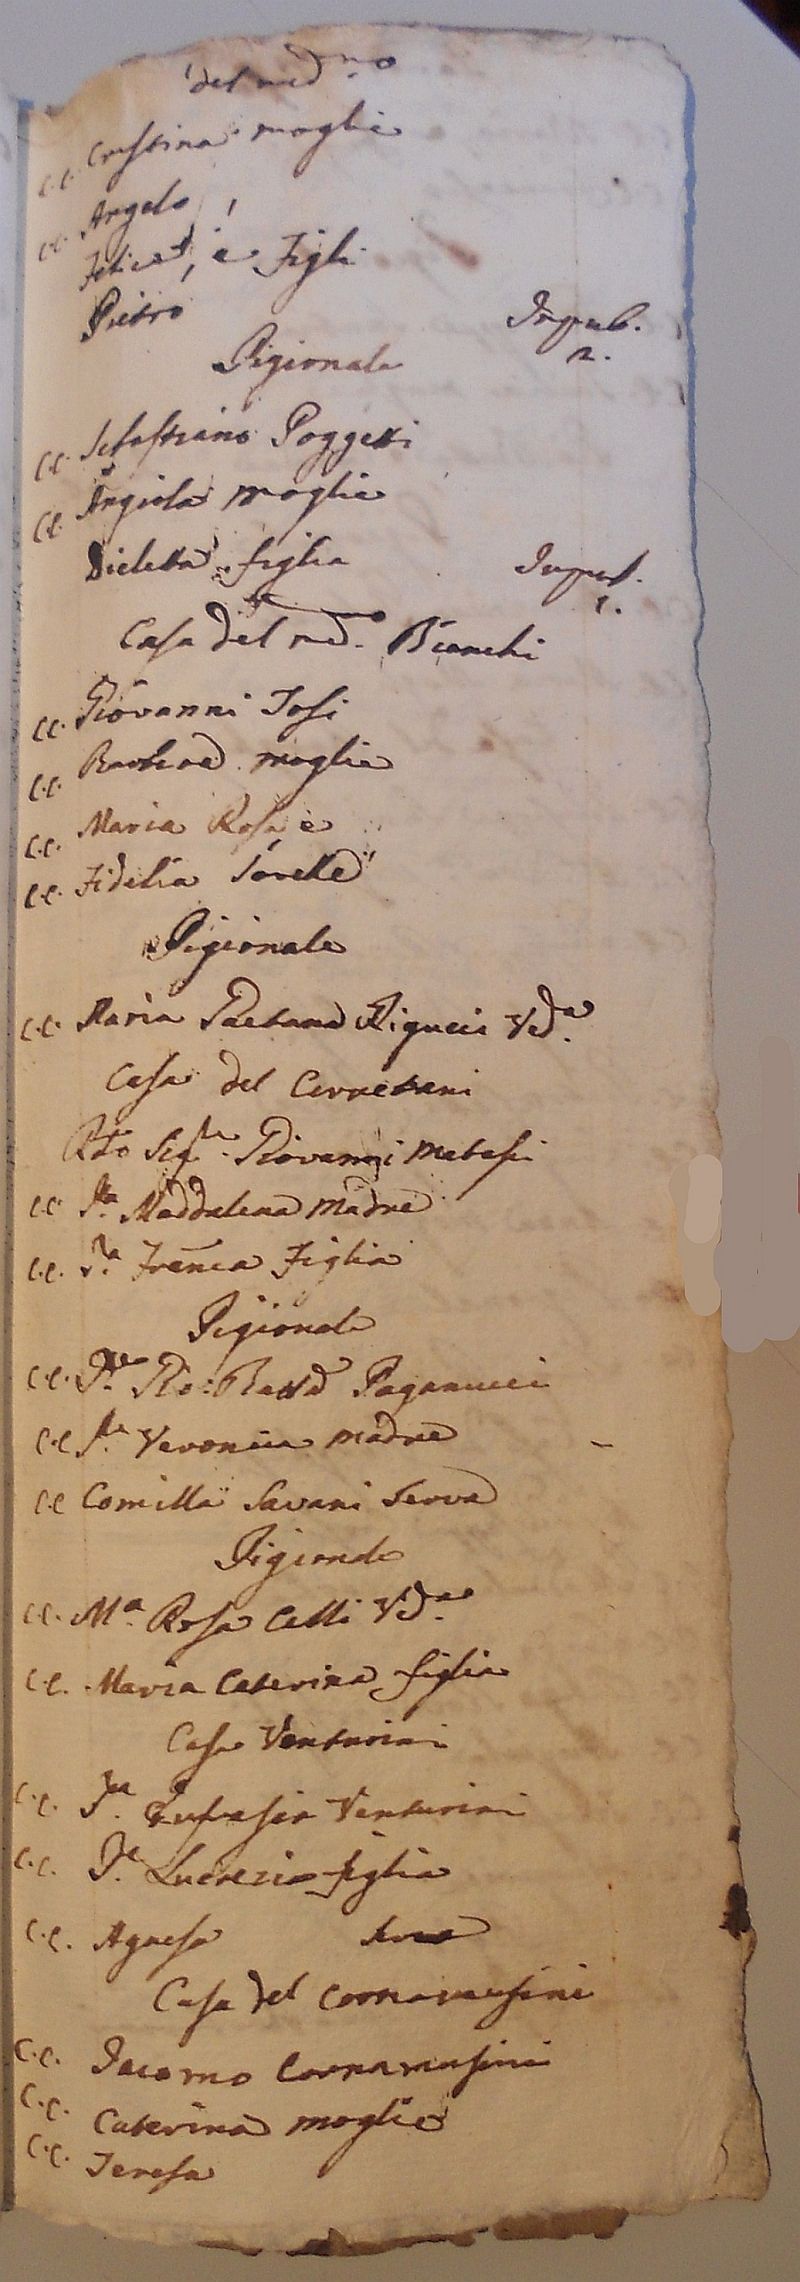 del med.mo
C.C. Cristina moglie
C.C. Angelo
Felice, e Figli
Pietro
Impub.
2.
Pigionale
C.C. Sebastiano Poggetti
C.C. Angiola moglie
Diletta figlia
Impub.
1.
Casa del med.mo Bianchi
C.C. Giovanni Tosi
C.C. Barbera moglie
C.C. Maria Rosa e
C.C. Fidelia Sorelle
Pigionale
C.C. Maria Gaetana Vd.a
Casa del Cerretani
Giovanni
C.C. S.ra Maddalena Madre
C.C. S.ra Franca Figlia
Pigionale
C.C. Gio: Batta Paganucci
C.C. S.ra Veronica madre
C.C. Comilla Savani Serva
Pigionale
C.C. M.a Rosa Celli Vd.a
C.C. Maria Caterina figlia
Casa Venturini
C.C. S.ra Eufrasia Venturini
C.C. Lucrezia figlia
C.C. Agnesa Serva
Casa del Cornamusini
C.C. Iacomo Cornamusini
C.C. Caterina moglie
C.C. Teresa